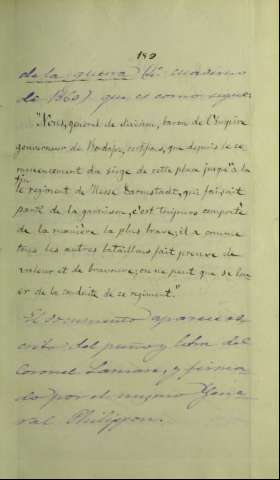 189
de la guerra (4º cuaderno
de 1860) que es como sigue:
"Nous, general de division, baron de l'Empire
gouverneur de Badajoz, certifions, que depuis le co-
mmencement du siege de cette place jusqu'à la
fin le regiment de Hesse Darmstadt, qui faisait
partie de la garnison, c'est toujours comporté
de la manière la plus brave; il a comme
tous les autres bataillons fait preuve de
valeur et de bravoure; on ne peut que se lou-
er de la conduite de ce regiment."
El documento aparece es-
crito del puño y letra del
Coronel Lamare, y firma-
do por el mismo Gene-
ral Philippon.